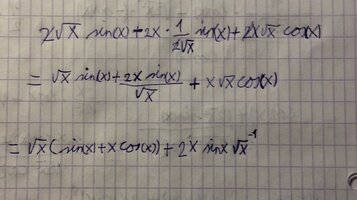 2√x sin(x) + 2x · 1/(2√x) sin(x) + 2x√x cos(x)
= √x sin(x) + (2x sin(x))/√x + x√x cos(x)
= √x (sin(x) + x cos(x)) + 2x sin x √x⁻¹